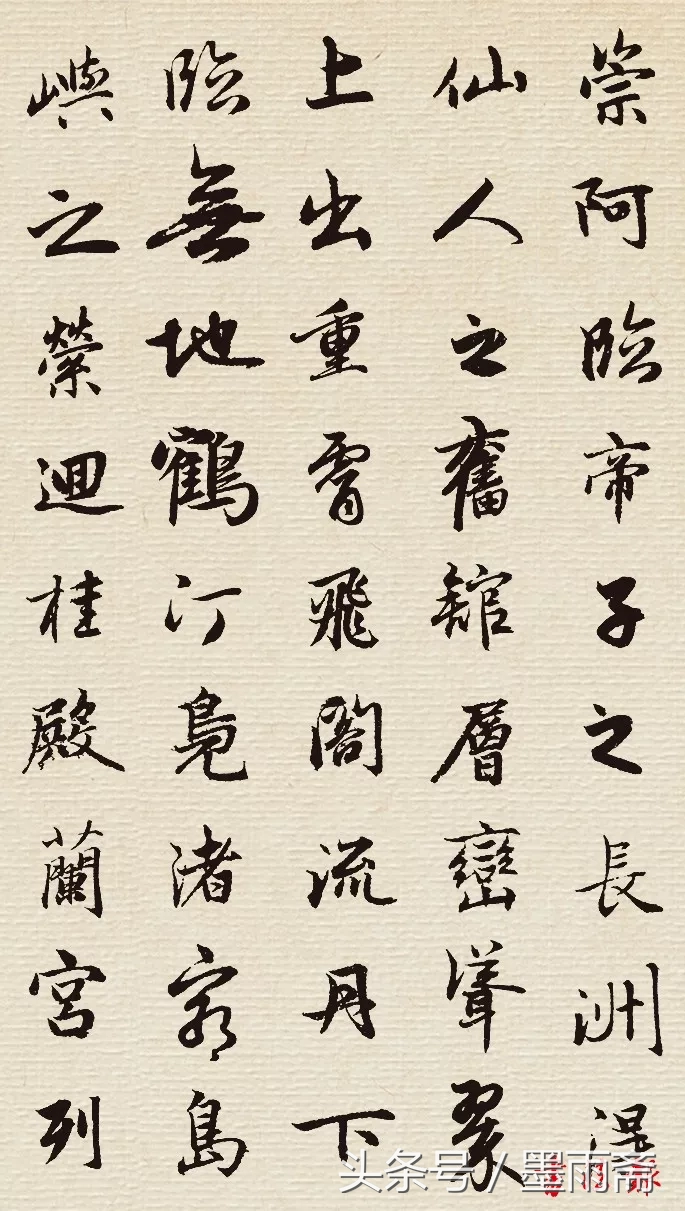 崇阿臨帝子之長洲得
仙人之舊舘層巒聳翠
上出重霄飛閣流丹下
臨無地鶴汀鳧渚窮島
嶼之縈迴桂殿蘭宮列
头条号 / 墨雨斋